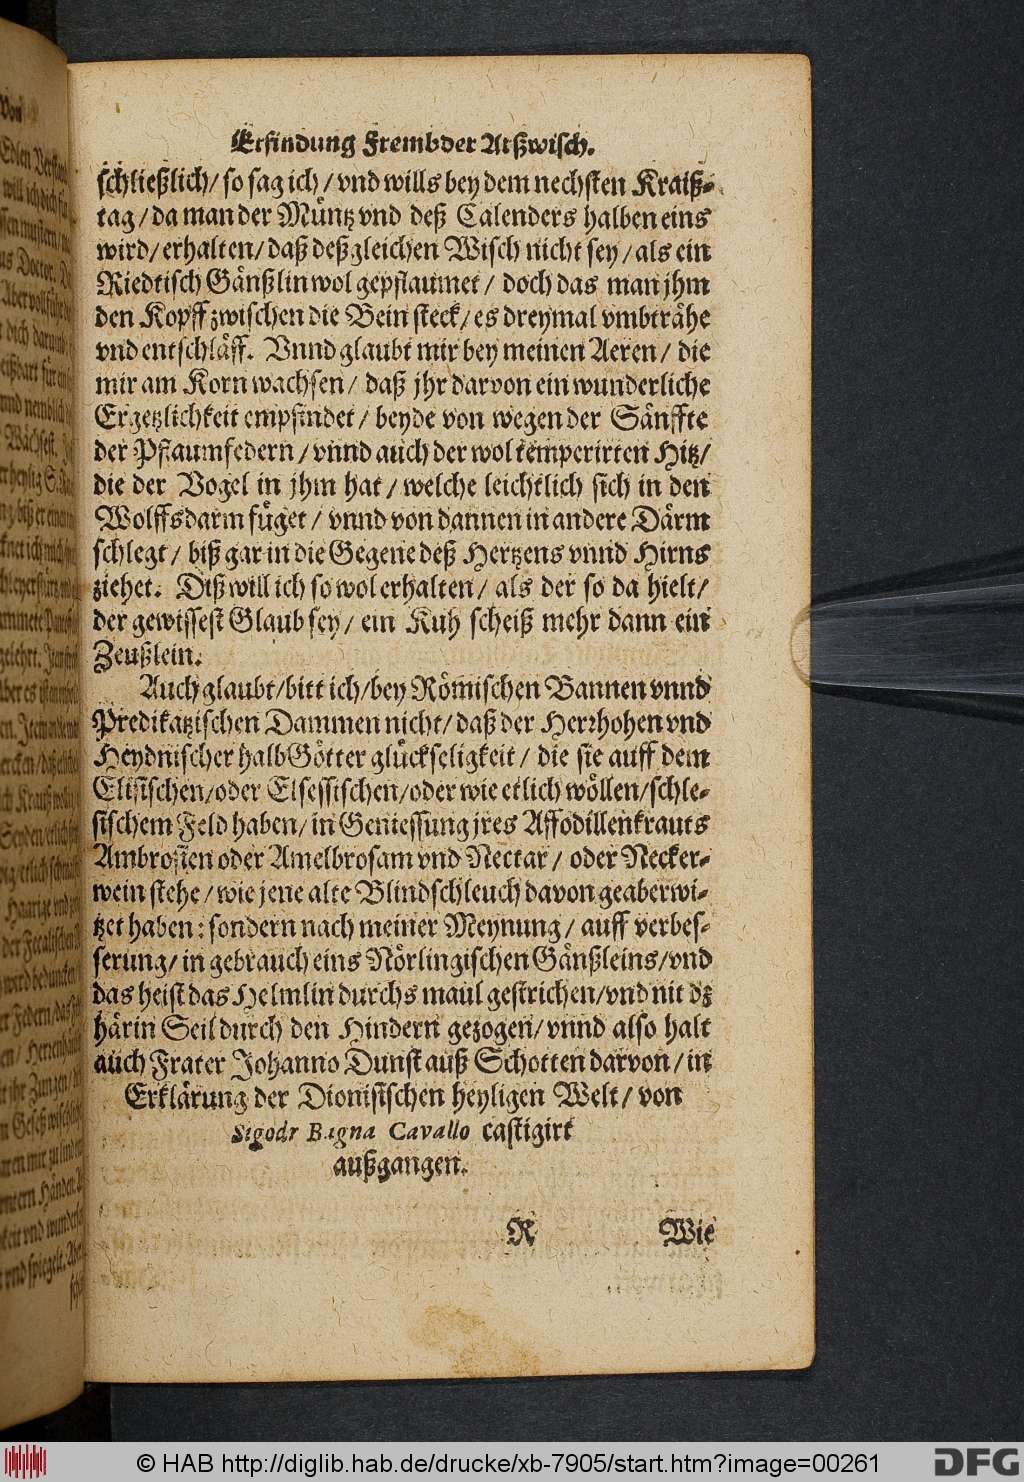 Erfindung Frembder Arßwisch.
schließlich/ so sag ich/ vnd wills bey dem nechsten Kraiß-
tag/ da man der Müntz vnd deß Calenders halben eins
wird/ erhalten/ daß deßgleichen Wisch nicht sey/ als ein
Riedtisch Gänßlin wol gepflaumet/ doch das man jhm
den Kopff zwischen die Bein steck/ es dreymal vmbträhe
vnd entschläff. Vnnd glaubt mir bey meinen Aeren/ die
mir am Korn wachsen/ daß jhr darvon ein wunderliche
Ergetzlichkeit empfindet/ beyde von wegen der Sänffte
der Pflaumfedern/ vnnd auch der wol temperirten Hitz/
die der Vogel in jhm hat/ welche leichtlich sich in den
Wolffsdarm füget/ vnnd von dannen in andere Därm
schlegt/ biß gar in die Gegene deß Hertzens vnnd Hirns
ziehet. Diß will ich so wol erhalten/ als der so da hielt/
der gewissest Glaub sey/ ein Kuh scheiß mehr dann ein
Zeußlein.
Auch glaubt/ bitt ich/ bey Römischen Bannen vnnd
Predikatzischen Dammen nicht/ daß der Herrhohen vnd
Heydnischer halbGötter glückseligkeit/ die sie auff dem
Elisischen/ oder Elsessischen/ oder wie etlich wöllen/ schle-
sischem Feld haben/ in Geniessung jres Affodillenkrauts
Ambrosien oder Amelbrosam vnd Nectar/ oder Necker-
wein stehe/ wie jene alte Blindschleuch davon geaberwi-
tzet haben: sondern nach meiner Meynung/ auff verbes-
serung/ in gebrauch eins Nörlingischen Gänßleins/ vnd
das heist das Helmlin durchs maul gestrichen/ vnd nit dz
härin Seil durch den Hindern gezogen/ vnnd also halt
auch Frater Johanno Dunst auß Schotten darvon/ in
Erklärung der Dionisischen heyligen Welt/ von
Sigodr Bagna Cavallo castigirt
außgangen.
R Wie
© HAB http://diglib.hab.de/drucke/xb-7905/start.htm?image=00261
DFG